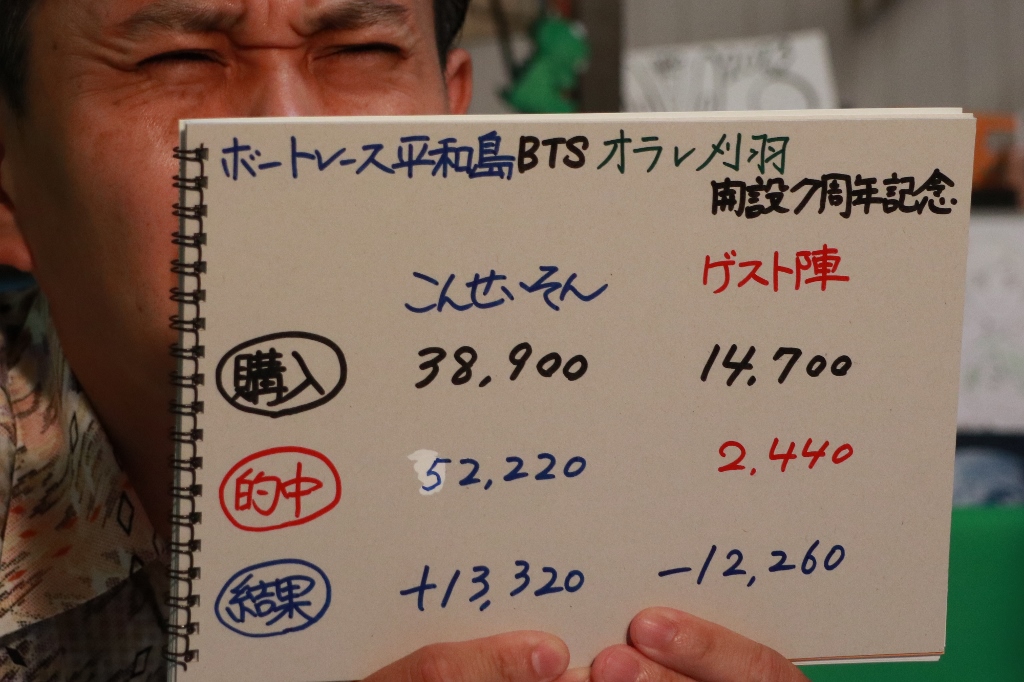 ボートレース平和島BTSオラレ刈羽
開設7周年記念
こんせいそん ゲスト陣
購入 38,900 14,700
的中 52,220 2,440
結果 +13,320 -12,260